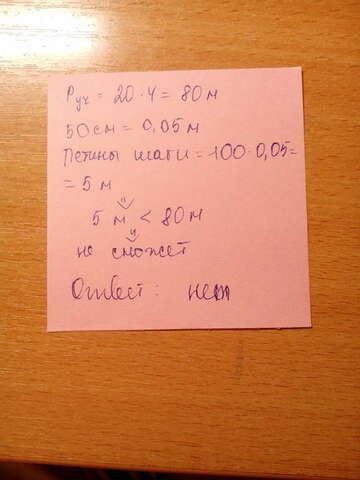 Pуч = 20 · 4 = 80 м
50 см = 0,05 м
Петины шаги = 100 · 0,05 =
= 5 м
5 м < 80 м
не сможет
Ответ: нет